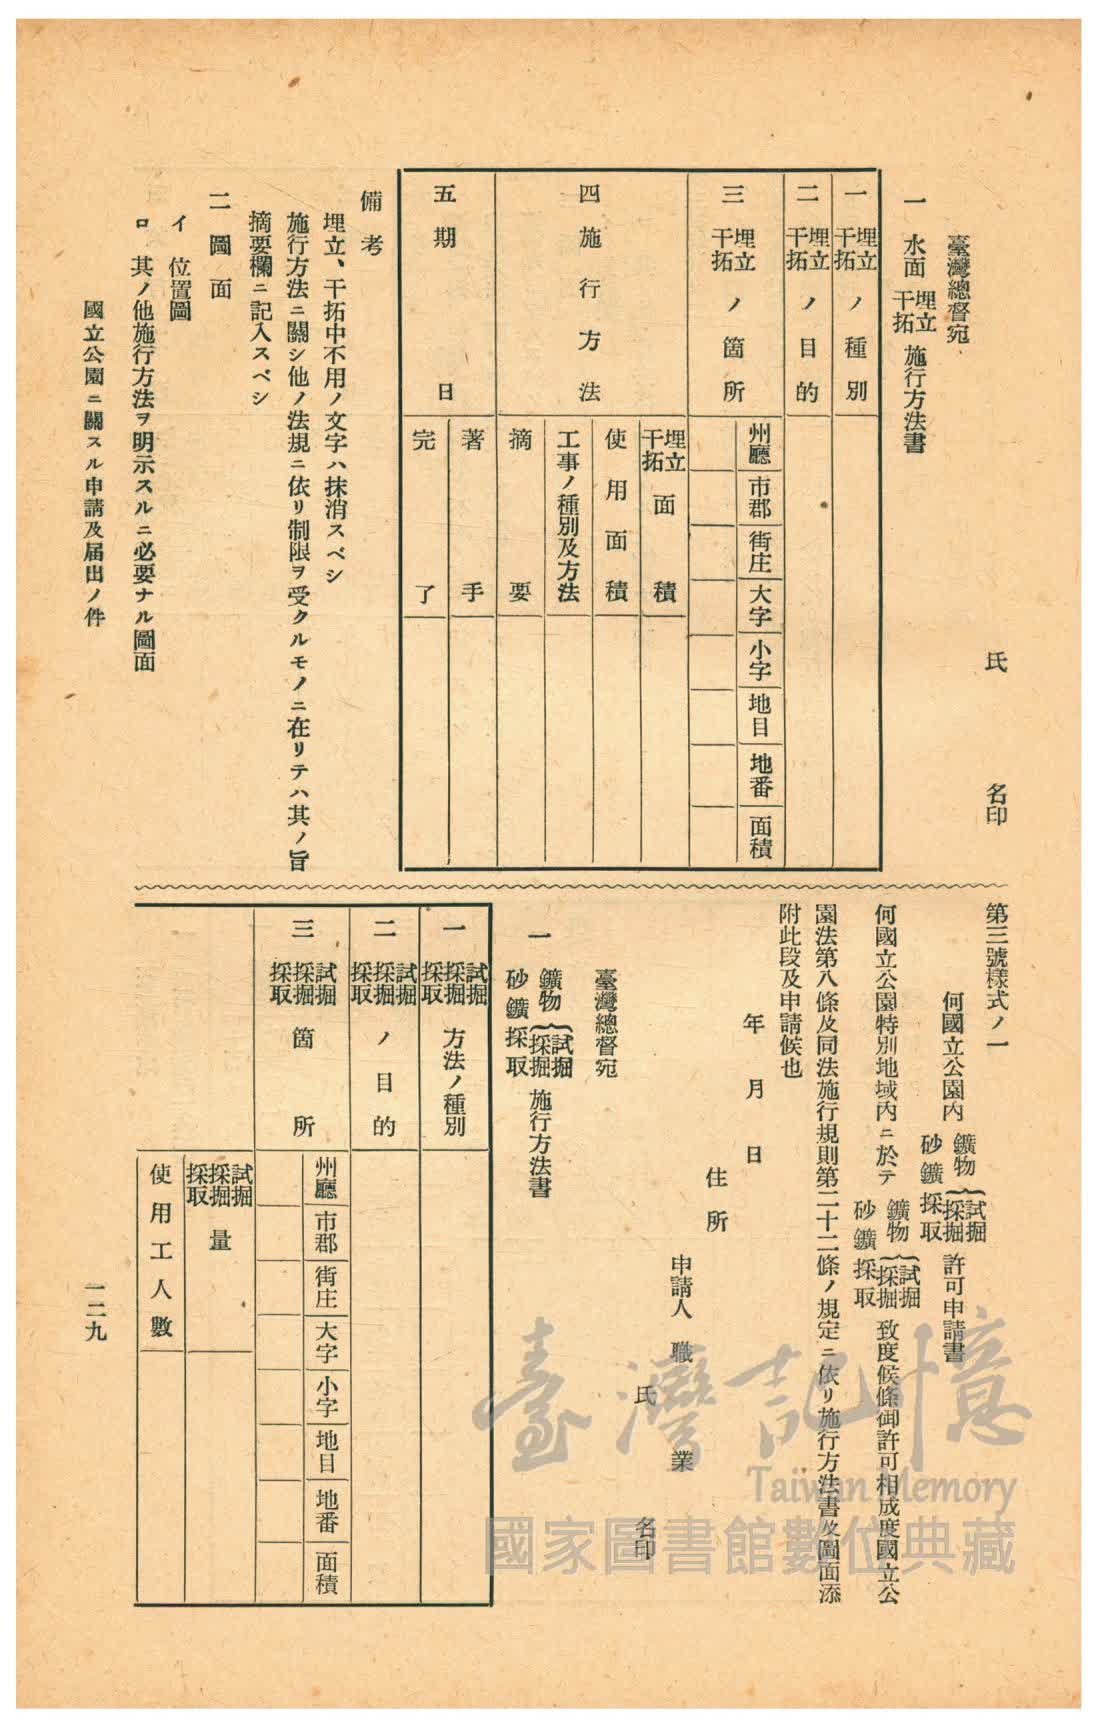 氏名印
臺灣總督宛
一 水面 埋立 干拓 施行方法書
一 埋立 干拓 ノ種別
二 埋立 干拓 ノ目的
三 埋立 干拓 ノ箇所
州廳 市郡 街庄 大字 小字 地目 地番 面積
四 施行方法
埋立 干拓 面積
使用面積
工事ノ種別及方法
摘要
五 期日
著手
完了
備考
埋立、干拓中不用ノ文字ハ抹消スベシ
施行方法ニ關シ他ノ法規ニ依リ制限ヲ受クルモノニ在リテハ其ノ旨
摘要欄ニ記入スベシ
二 圖面
イ 位置圖
ロ 其ノ他施行方法ヲ明示スルニ必要ナル圖面
國立公園ニ關スル申請及届出ノ件
第三號樣式ノ一
何國立公園內 鑛物{試掘 採掘 砂鑛採取 許可申請書
何國立公園特別地域內ニ於テ 鑛物{試掘 採掘 砂鑛採取 致度候條御許可相成度國立公
園法第八條及同法施行規則第二十二條ノ規定ニ依リ施行方法書及圖面添
附此段及申請候也
年月日
住所
申請人 職業
氏名印
臺灣總督宛
一 鑛物{試掘 採掘 砂鑛採取 施行方法書
一 試掘 採掘 採取 方法ノ種別
二 試掘 採掘 採取 ノ目的
三 試掘 採掘 採取 箇所
州廳 市郡 街庄 大字 小字 地目 地番 面積
試掘 採掘 採取 量
使用工人數
一二九
臺灣記憶
Taiwan Memory
國家圖書館數位典藏